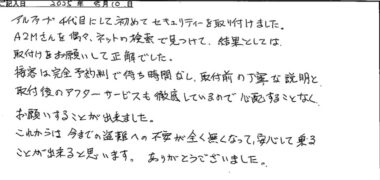 ご記入日 2025年 8月10日
アルファード4代目にして初めてセキュリティーを取り付けました。
A2Mさんを偶々、ネットの検索で見つけて、結果としては、
取付けをお願いして正解でした。
接客は完全予約制で待ち時間なし、取付前の丁寧な説明と、
取付後のアフターサービスも徹底しているので心配することなく、
お願いすることが出来ました。
これからは今までの盗難への不安が全く無くなって、安心して乗る
ことが出来ると思います。ありがとうございました。